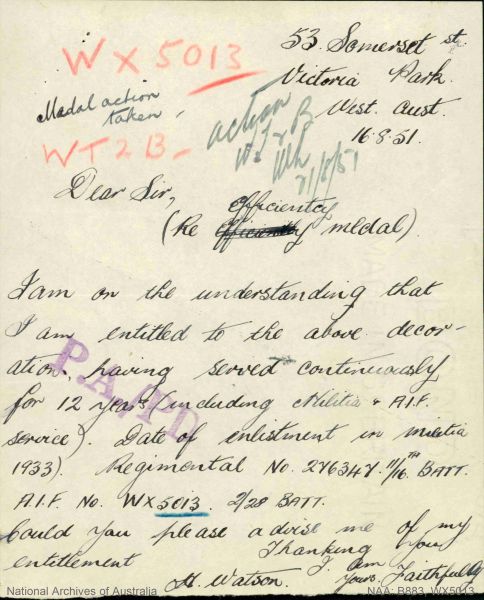 53 Somerset st
WX 5013
Victoria Park.
Medal action taken,
West. Aust.
action
16.8.51.
WT2B-
21/8/51
Dear Sir,
Efficiency
(Re medal)
I am on the understanding that
I am entitled to the above decor-
ation, having served continuously
for 12 years (including Militia & A.I.F.
service). Date of enlistment in militia
1933). Regimental No. 276347 11/16TH BATT.
A.I.F. No. WX 5013. 2/28 BATT.
Could you please advise me of my
entitlement
Thanking you
I am
Yours Faithfully
H. Watson.
P.A./PD
National Archives of Australia
NAA: B883, WX5013